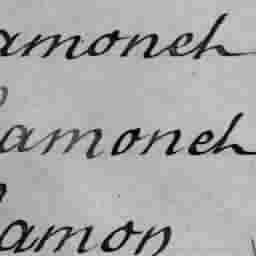 amoneh
amoneh
amon